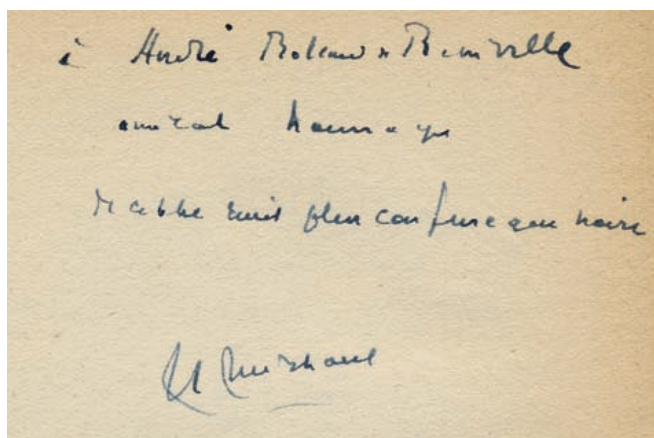 à André Rolland de Renéville
amical hommage
de cette nuit plus confuse que noire
H Michaux